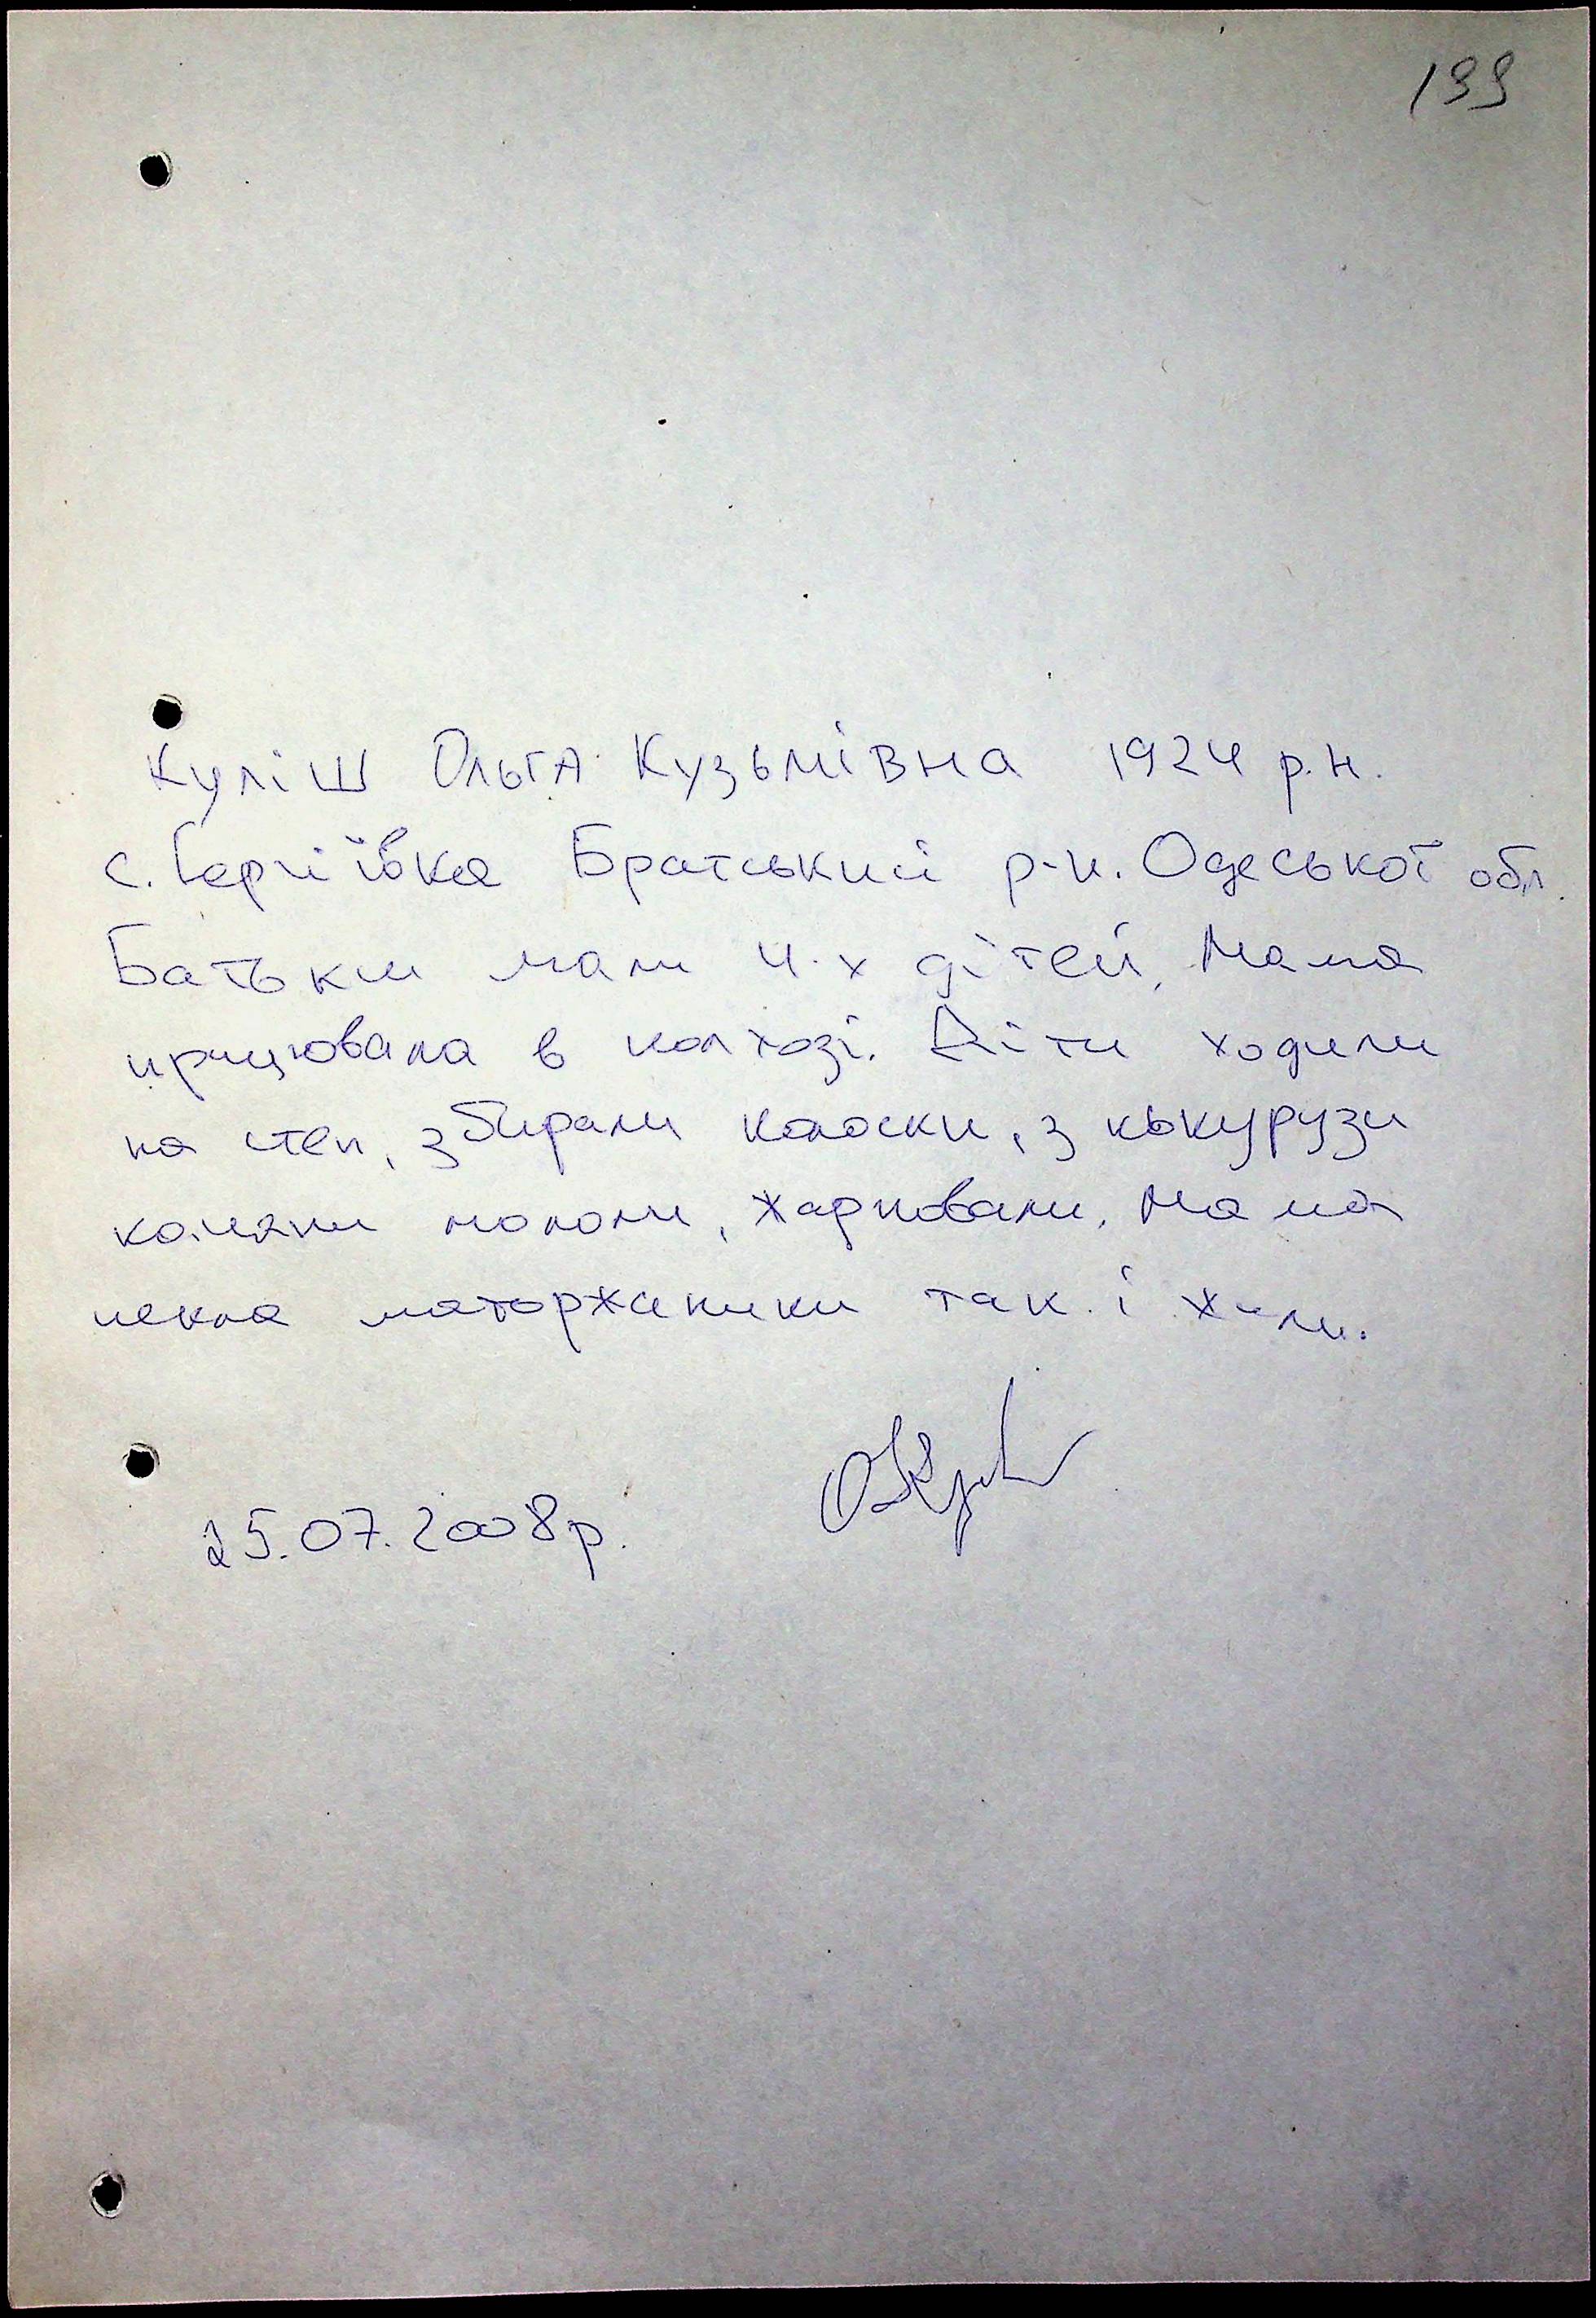 199
Куліш Ольга Кузьмівна 1924 р.н.
с. Сергіївка Братський р-н. Одеської обл.
Батьки мали 4-х дітей, Мама
працювала в колхозі. Діти ходили
на степ, збирали колоски, з кукурузи
качани мололи, харчували. Мама
пекла маторжаники так і жили.
25.07.2008р.